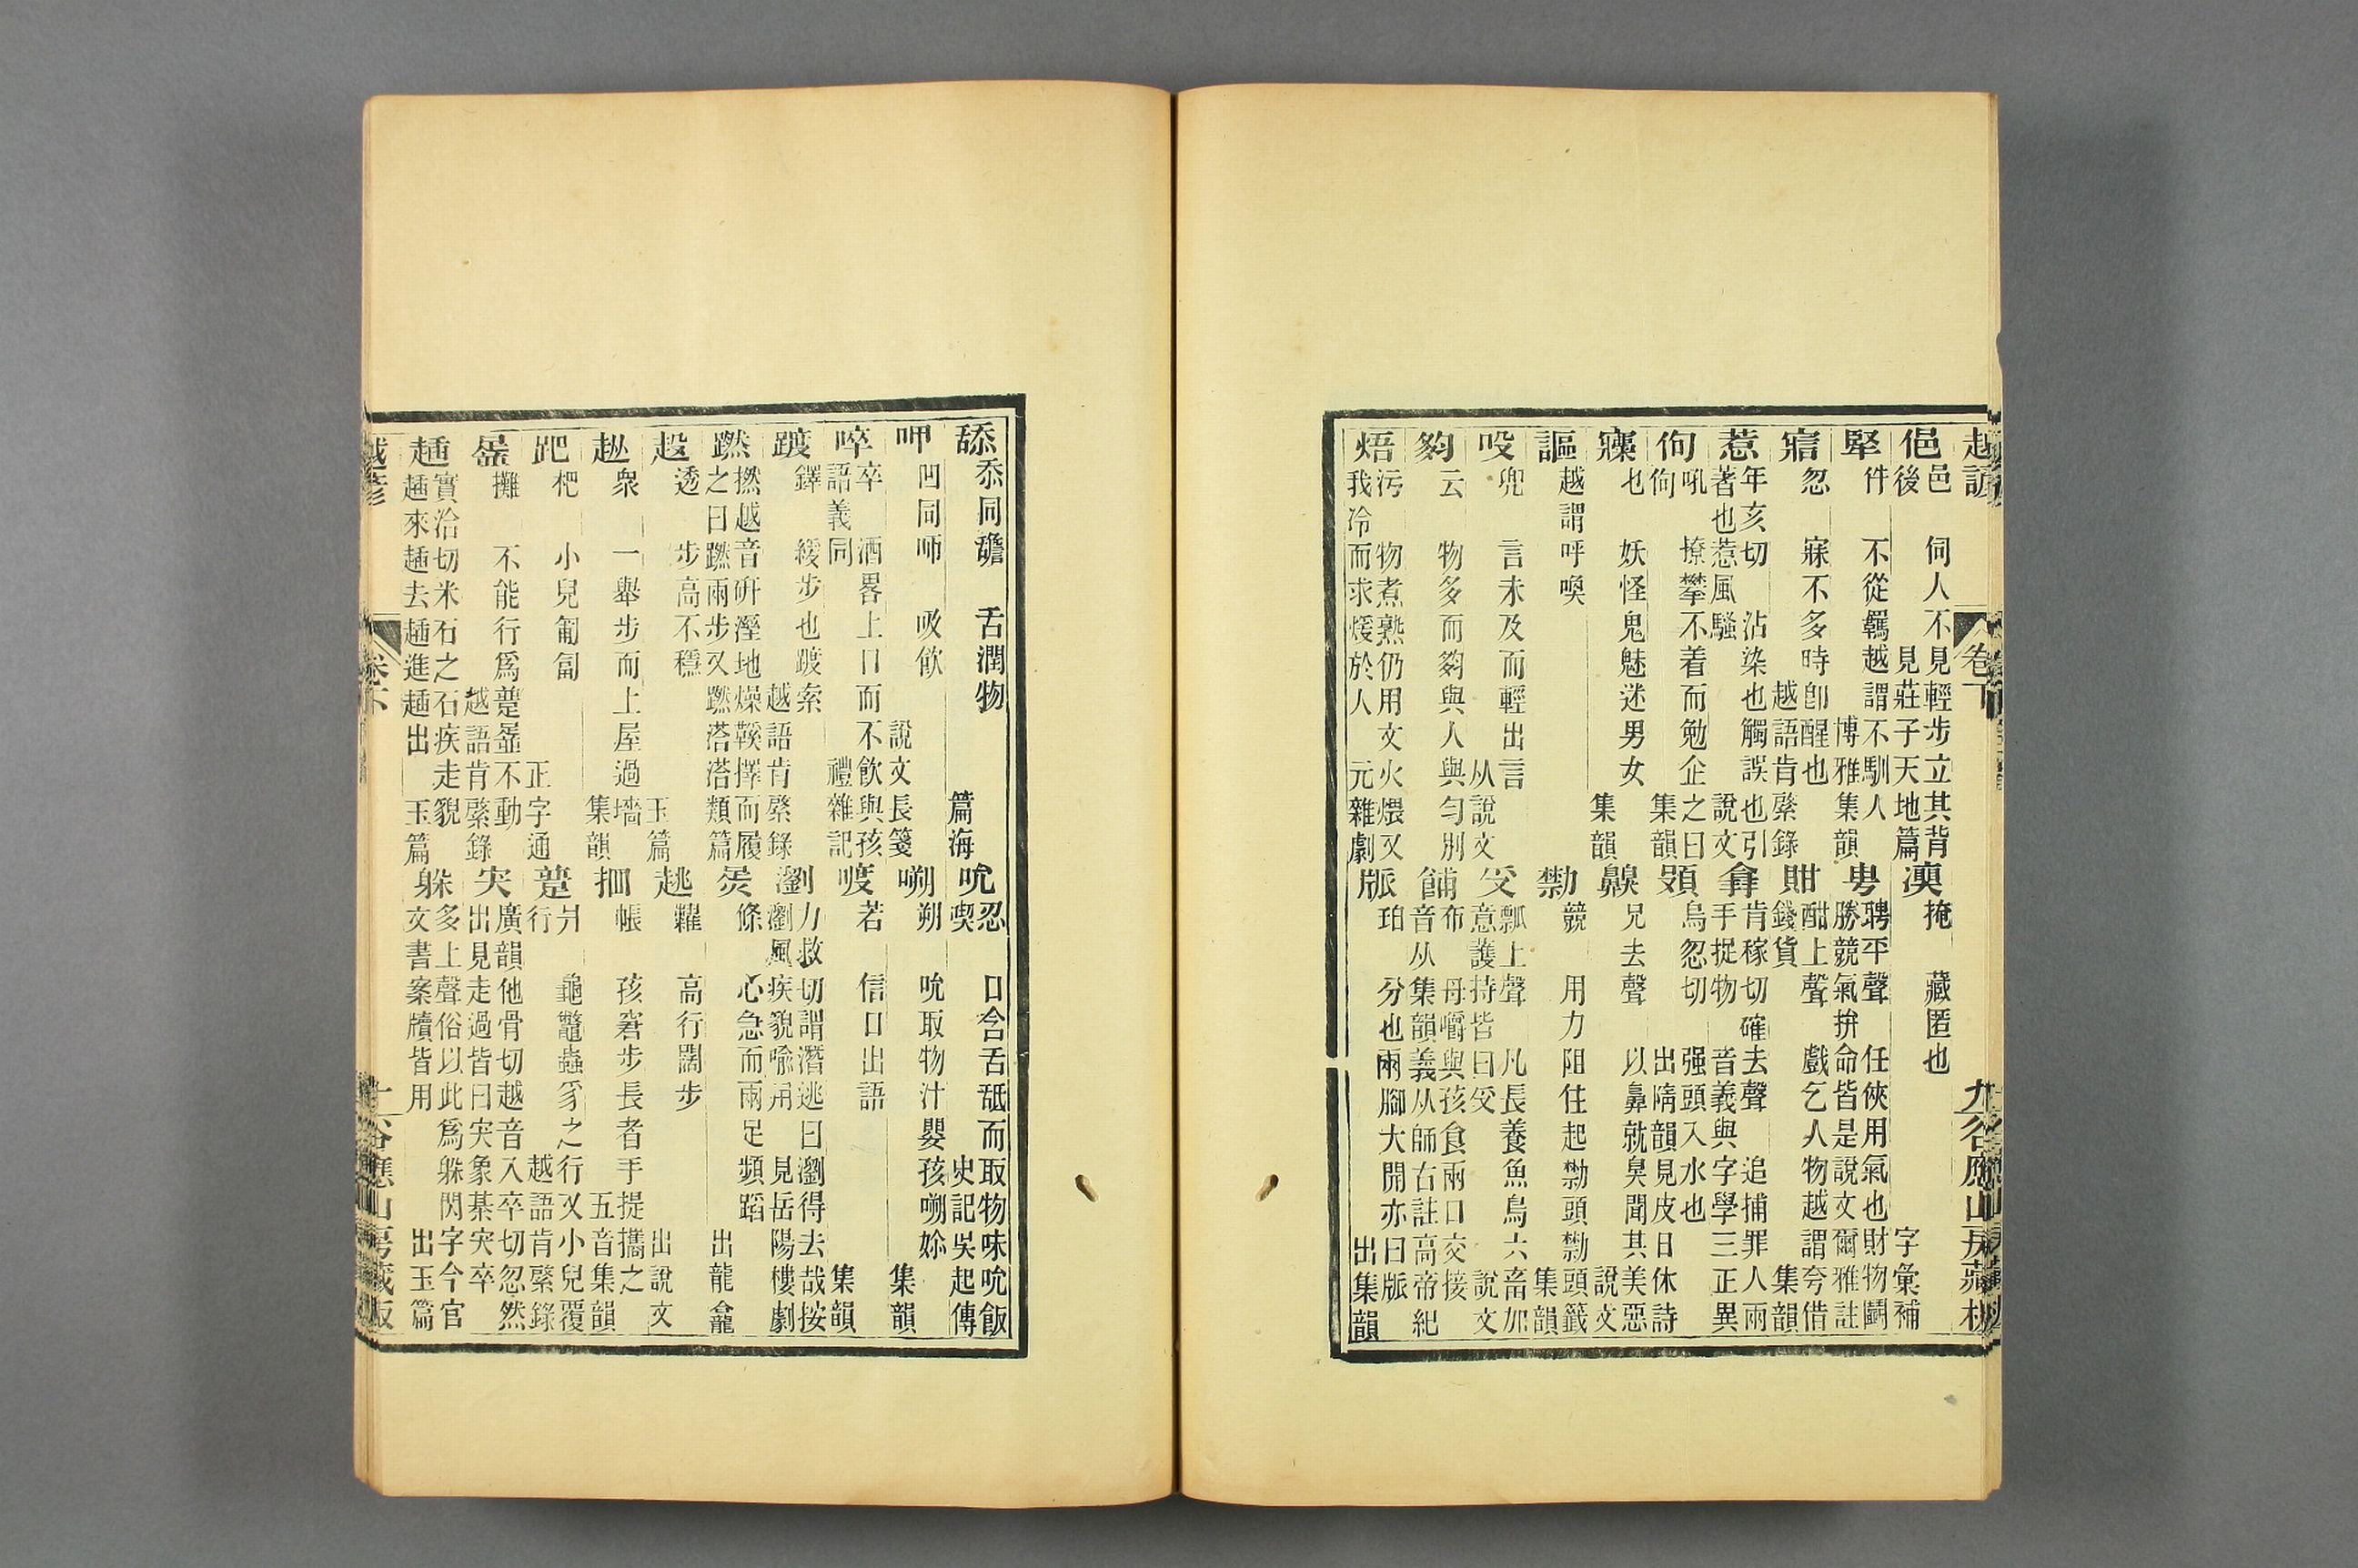 越諺 卷下 九 谷應山房藏板
俋 邑 伺人不見輕步立其背後 見莊子天地篇
㵄 掩 藏匿也 字彙補
堅 件 不從羈越謂不馴人 博雅集韻
甹 聘平聲 任俠用氣也財物鬭勝競氣拚命皆是說文爾雅註
寣 忽 寐不多時卽醒也 越語肯綮錄
㖼 酣上聲 戲乞人物越謂夸借錢貨 集韻
惹 年亥切 沾染也觸誤也引著也惹風騷 說文
搿 肯稼切 去聲 追捕罪人兩手捉物 確音義與字學三正異
佝 吼 撩攀不着而勉企之曰佝 集韻
頞 烏忽切 强頭入水也 出隋韻見皮日休詩
寱 乜 妖怪鬼魅迷男女 集韻
齅 兄去聲 以鼻就臭聞其美惡 說文
謳 越謂呼喚
勷 競 用力阻住起勷頭勷頭籖 集韻
吺 兜 言未及而輕出言 从說文
受 瓢上聲 凡長養魚鳥六畜加意護持皆曰受 說文
夠 云 物多而夠與人與勻別
餔 布 母嚼與孩食兩口交接音从集韻義从師古註高帝紀
焐 污 物煮熟仍用文火煨又我冷而求煖於人 元雜劇
𠂢 珀 分也兩腳大開亦曰𠂢 出集韻
舕 忝同䃫 舌潤物 篇海
吮 忍 口含舌舐而取物味吮飯喫 史記吳起傳
呷 凹同哳 吸飮 說文長箋
嗍 朔 吮取物汁嬰孩嗍妳 集韻
啐 卒 酒畧上口而不飮與孩語義同 禮雜記
喥 若 信口出語 集韻
踱 鐸 緩步也踱索 越語肯綮錄
瀏 力救切謂潛逃曰瀏得去哉按瀏風疾貌喩用 見岳陽樓劇
蹨 撚越音硏溼地燥鞵擇而履之曰蹨兩步又蹨㙮㙮 類篇
炗 條 心急而兩足頻蹈 出龍龕
𧺆 透 步高不穩 玉篇
趒 糶 高行闊步 出說文
𧺷 衆 一舉步而上屋過墻 集韻
抇 帳 孩砦步長者手提攜之 五音集韻
跁 杷 小兒匍匐 正字通
躄 爿 龜鼈蟲豸之行又小兒覆行 越語肯綮錄
𡰠 攤 不能行爲躄𡰠不動 越語肯綮錄
宊 廣韻他骨切越音入卒切忽然出見走過皆曰宊象棊宊卒
䞟 實洽切米石之石疾走貌䞟來䞟去䞟進䞟出 玉篇
躲 多上聲俗以此爲躲閃字今官文書案牘皆用 出玉篇
越諺 卷下 十 谷應山房藏板